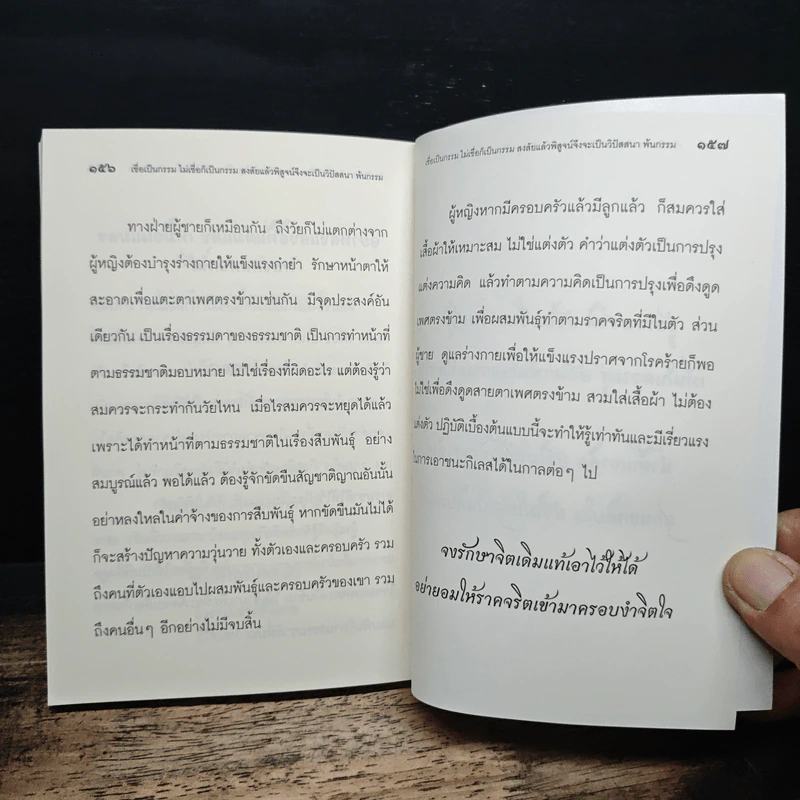 ๑๕๖ เชื่อเป็นกรรม ไม่เชื่อก็เป็นกรรม สงสัยแล้วพิสูจน์จึงจะเป็นวิปัสสนา พ้นกรรม
ทางฝ่ายผู้ชายก็เหมือนกัน ถึงวัยก็ไม่แตกต่างจาก
ผู้หญิงต้องบำรุงร่างกายให้แข็งแรงกำยำ รักษาหน้าตาให้
สะอาดเพื่อแตะตาเพศตรงข้ามเช่นกัน มีจุดประสงค์อัน
เดียวกัน เป็นเรื่องธรรมดาของธรรมชาติ เป็นการทำหน้าที่
ตามธรรมชาติมอบหมาย ไม่ใช่เรื่องที่ผิดอะไร แต่ต้องรู้ว่า
สมควรจะกระทำกันวัยไหน เมื่อไรสมควรจะหยุดได้แล้ว
เพราะได้ทำหน้าที่ตามธรรมชาติในเรื่องสืบพันธุ์ อย่าง
สมบูรณ์แล้ว พอได้แล้ว ต้องรู้จักขัดขืนสัญชาติญาณอันนั้น
อย่าหลงใหลในค่าจ้างของการสืบพันธุ์ หากขัดขืนมันไม่ได้
ก็จะสร้างปัญหาความวุ่นวาย ทั้งตัวเองและครอบครัว รวม
ถึงคนที่ตัวเองแอบไปผสมพันธุ์และครอบครัวของเขา รวม
ถึงคนอื่นๆ อีกอย่างไม่มีจบสิ้น
เชื่อเป็นกรรม ไม่เชื่อก็เป็นกรรม สงสัยแล้วพิสูจน์จึงจะเป็นวิปัสสนา พ้นกรรม ๑๕๗
ผู้หญิงหากมีครอบครัวแล้วมีลูกแล้ว ก็สมควรใส่
เสื้อผ้าให้เหมาะสม ไม่ใช่แต่งตัว คำว่าแต่งตัวเป็นการปรุง
แต่งความคิด แล้วทำตามความคิดเป็นการปรุงเพื่อดึงดูด
เพศตรงข้าม เพื่อผสมพันธุ์ทำตามราคจริตที่มีในตัว ส่วน
ผู้ชาย ดูแลร่างกายเพื่อให้แข็งแรงปราศจากโรคร้ายก็พอ
ไม่ใช่เพื่อดึงดูดสายตาเพศตรงข้าม สวมใส่เสื้อผ้า ไม่ต้อง
แต่งตัว ปฏิบัติเบื้องต้นแบบนี้จะทำให้รู้เท่าทันและมีเรี่ยวแรง
ในการเอาชนะกิเลสได้ในกาลต่อๆ ไป
จงรักษาจิตเดิมแท้เอาไว้ให้ได้
อย่ายอมให้ราคจริตเข้ามาครอบงำจิตใจ